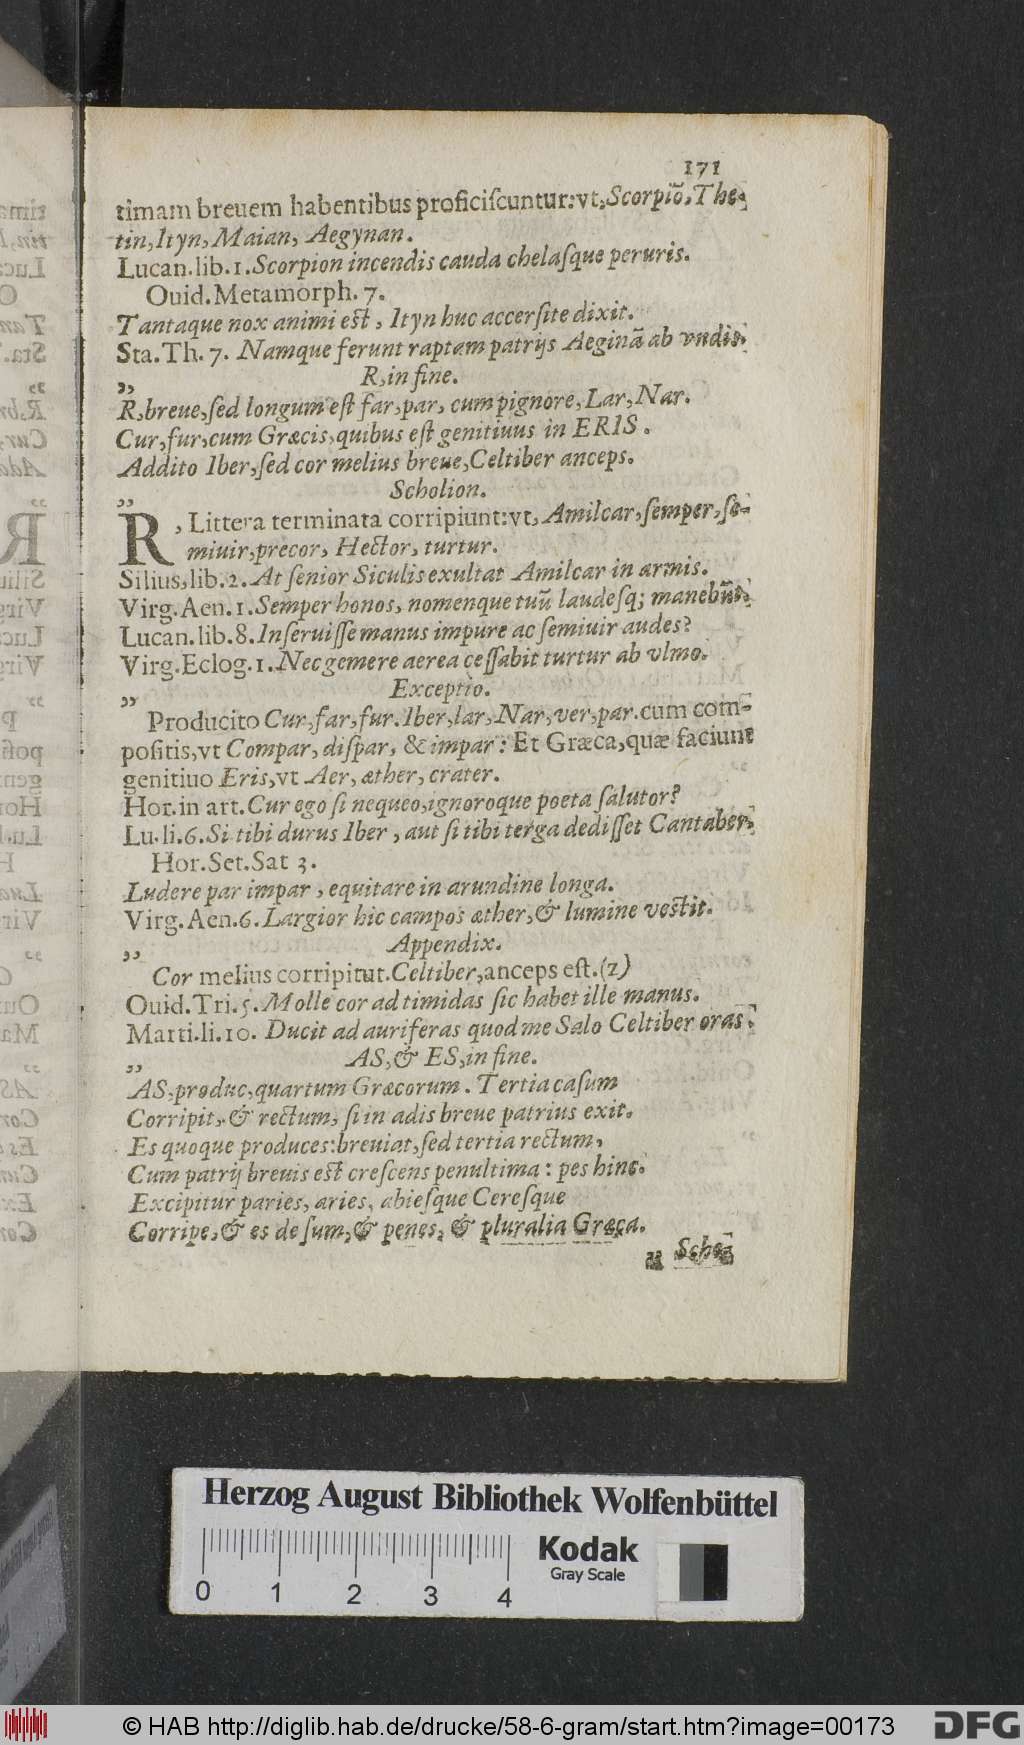 171
timam breuem habentibus proficiſcuntur:vt,Scorpiõ,The-
tin,Ityn,Maian, Aegynan.
Lucan.lib.1.Scorpion incendis cauda chelaſque peruris.
Ouid.Metamorph.7.
Tantaque nox animi eſt, Ityn huc accerſite dixit.
Sta.Th.7. Namque ferunt raptam patrijs Aeginã ab vndis.
„ R,in fine.
R,breue,ſed longum eſt far,par, cum pignore, Lar,Nar.
Cur,fur,cum Græcis,quibus eſt genitiuus in ERIS.
Addito Iber,ſed cor melius breue,Celtiber anceps.
„ Scholion.
R, Littera terminata corripiunt:vt, Amilcar,ſemper,ſe-
miuir,precor, Hector, turtur.
Silius,lib.2.At ſenior Siculis exultat Amilcar in armis.
Virg.Aen.1.Semper honos, nomenque tuũ laudeſq; manebũt.
Lucan.lib.8.Inſeruiſſe manus impure ac ſemiuir audes?
Virg.Eclog.1.Nec gemere aerea ceſſabit turtur ab vlmo.
„ Exceptio.
Producito Cur,far,fur.Iber,lar,Nar,ver,par.cum com-
poſitis,vt Compar, diſpar, & impar: Et Græca,quæ faciunt
genitiuo Eris,vt Aer, æther, crater.
Hor.in art.Cur ego ſi nequeo,ignoroque poeta ſalutor?
Lu.li.6.Si tibi durus Iber, aut ſi tibi terga dediſſet Cantaber.
Hor.Set.Sat 3.
Ludere par impar, equitare in arundine longa.
Virg.Aen.6.Largior hic campos æther,& lumine veſtit.
„ Appendix.
Cor melius corripitut.Celtiber,anceps eſt.(2)
Ouid.Tri.5.Molle cor ad timidas ſic habet ille manus.
Marti.li.10. Ducit ad auriferas quod me Salo Celtiber oras.
„ AS,& ES,in fine.
AS,produc,quartum Græcorum. Tertia caſum
Corripit,& rectum, ſi in adis breue patrius exit.
Es quoque produces:breuiat,ſed tertia rectum,
Cum patrij breuis eſt creſcens penultima: pes hinc.
Excipitur paries, aries, abieſque Cereſque
Corripe,& es de ſum,& penes, & pluralia Græca.
„ Scho-
Herzog August Bibliothek Wolfenbüttel
Kodak
Gray Scale
0 1 2 3 4
© HAB http://diglib.hab.de/drucke/58-6-gram/start.htm?image=00173
DFG